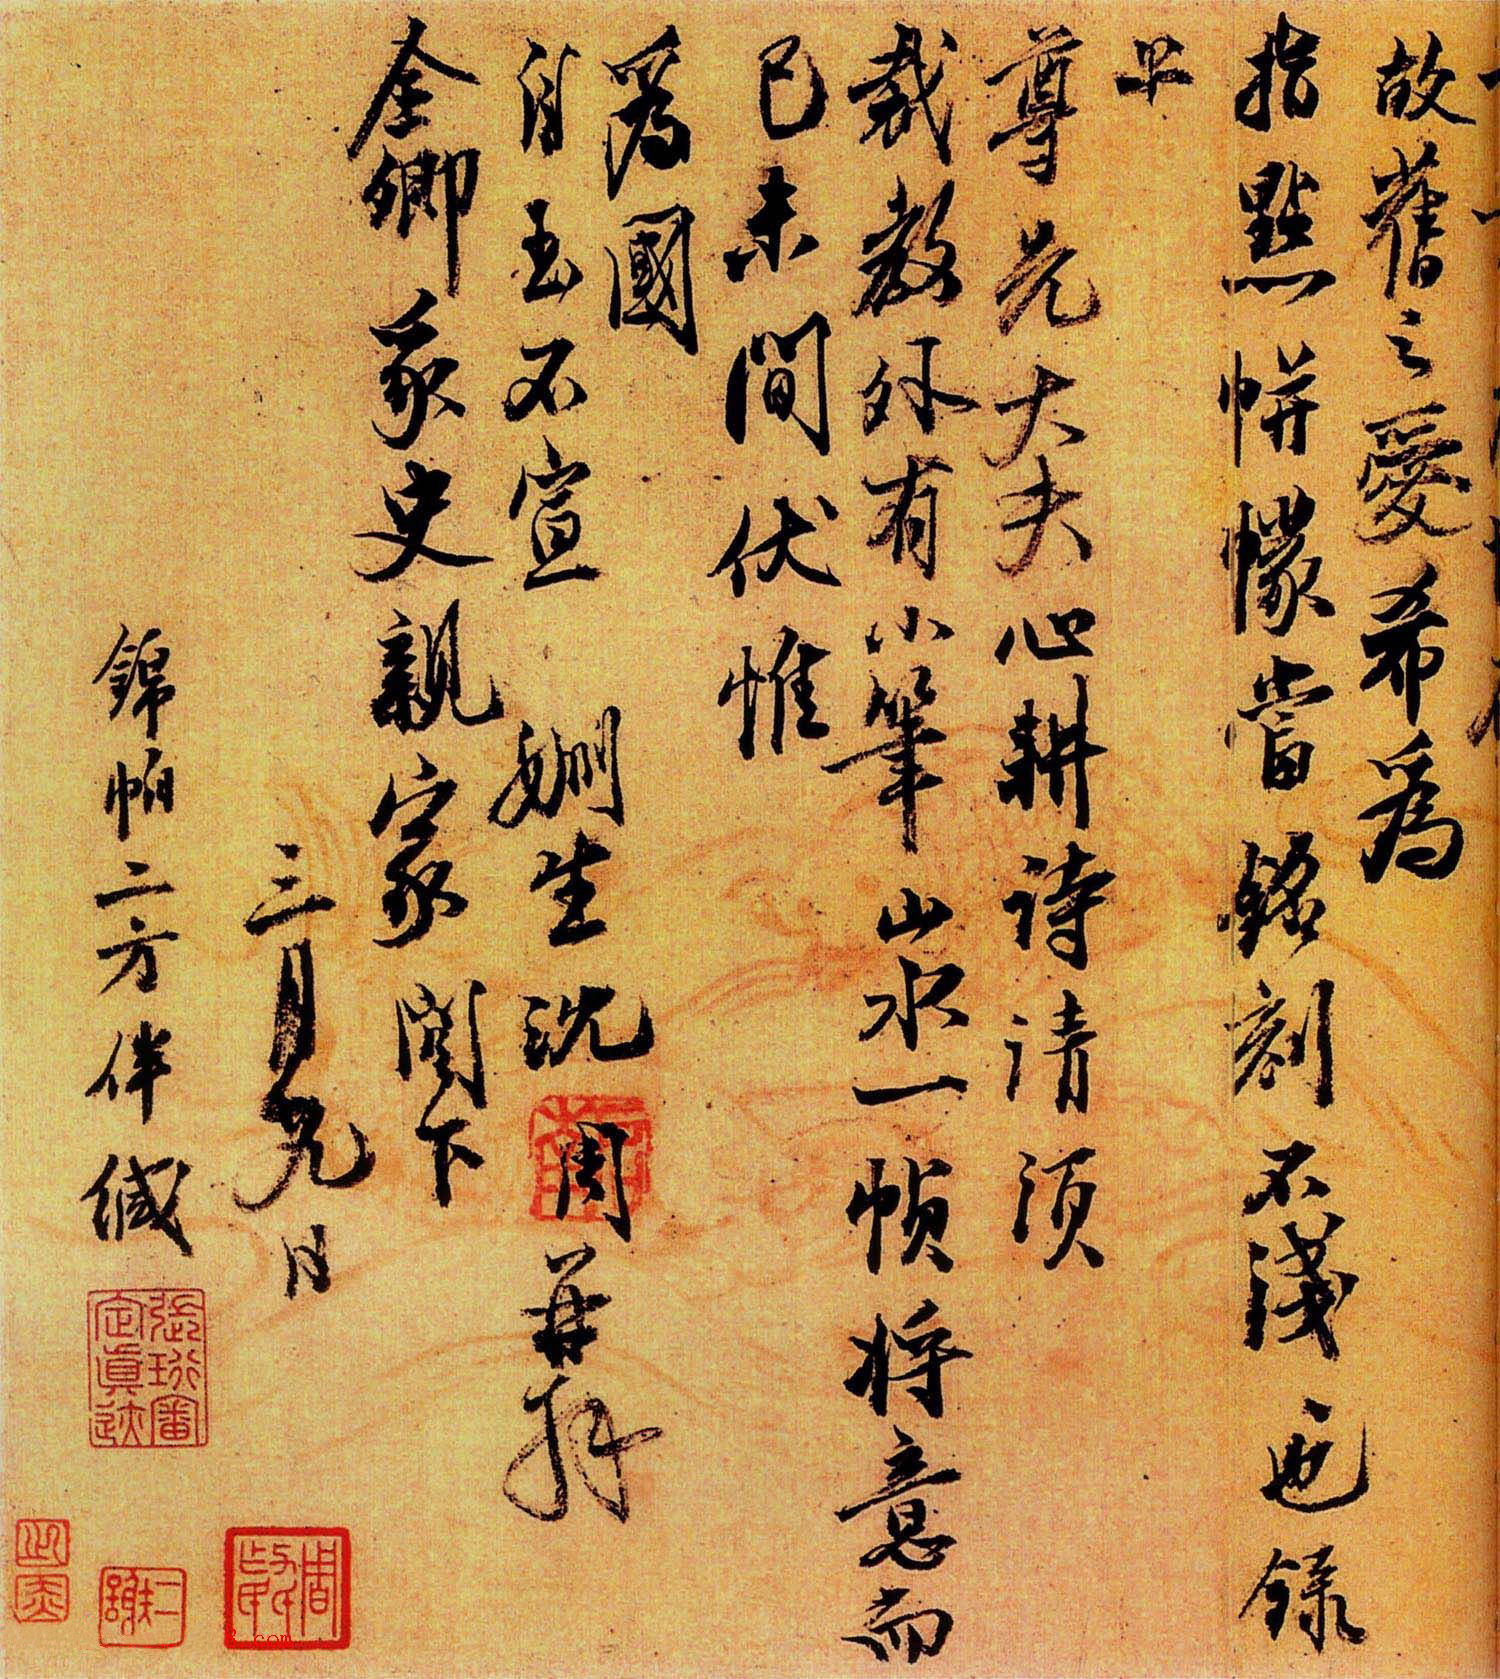 故舊之愛希爲
指點帡幪當銘刻不淺也錄
上
尊先大夫心耕詩請須
裁教外有小筆山水一幀將意而
已未間伏惟
爲國
自玉不宣　姻生沈周再拜
僉卿家史親家閣下
三月九日
錦帕二方伴緘
張珩審
定真迹